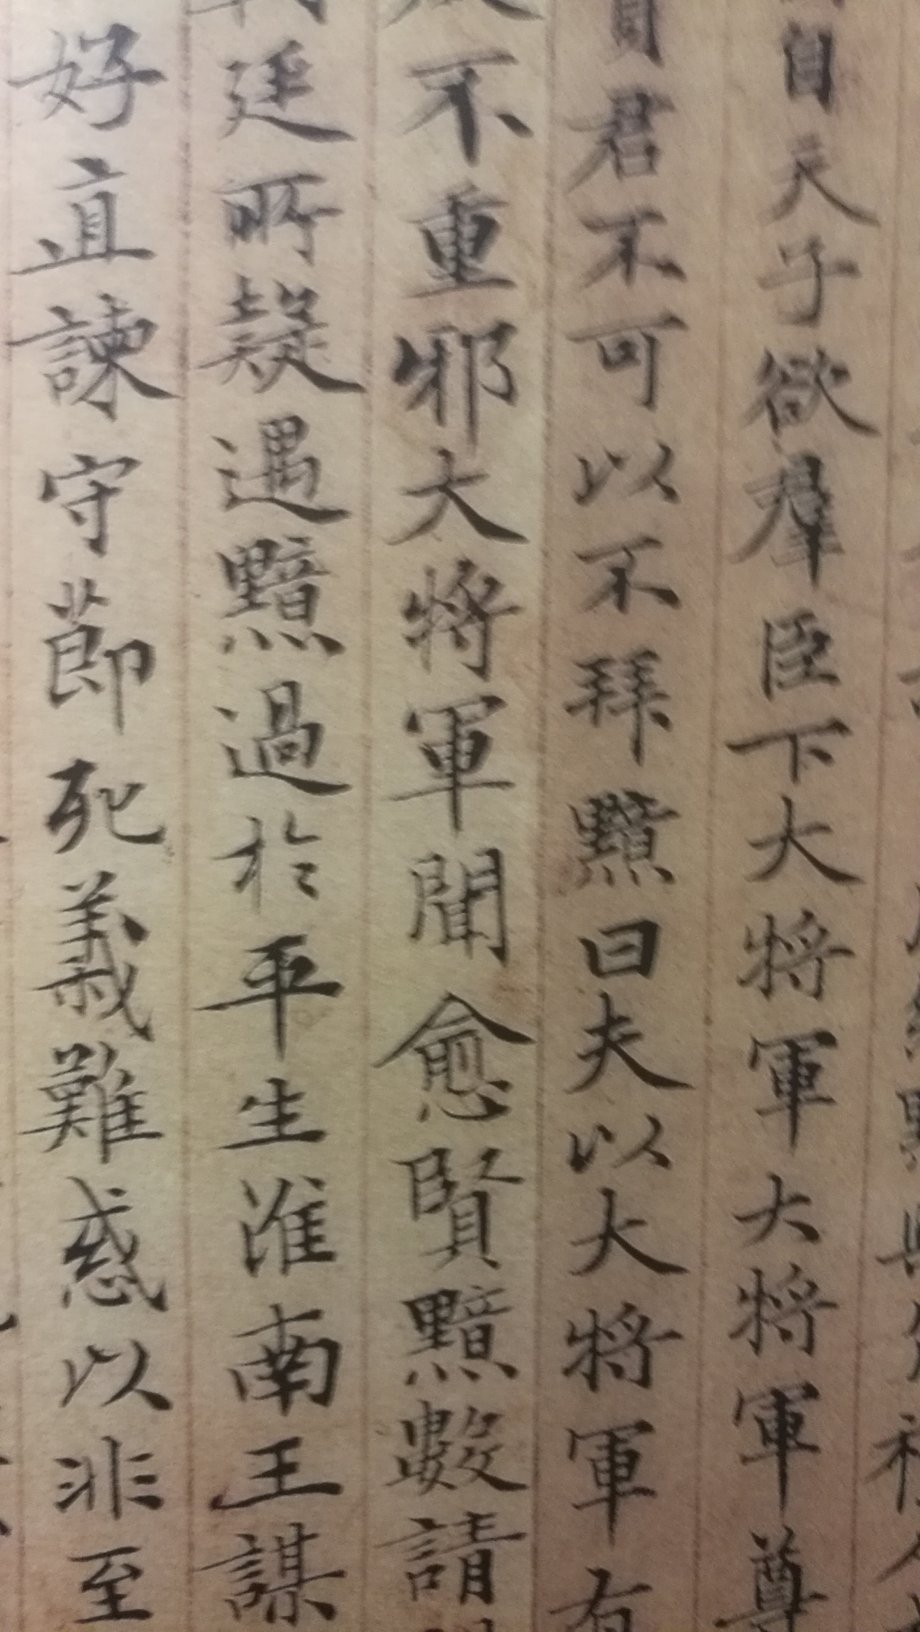 自天子欲羣臣下大將軍大將軍尊
君不可以不拜黯曰夫以大將軍有
不重邪大將軍聞愈賢黯數請
廷所疑遇黯過於平生淮南王謀
好直諫守節死義難惑以非至